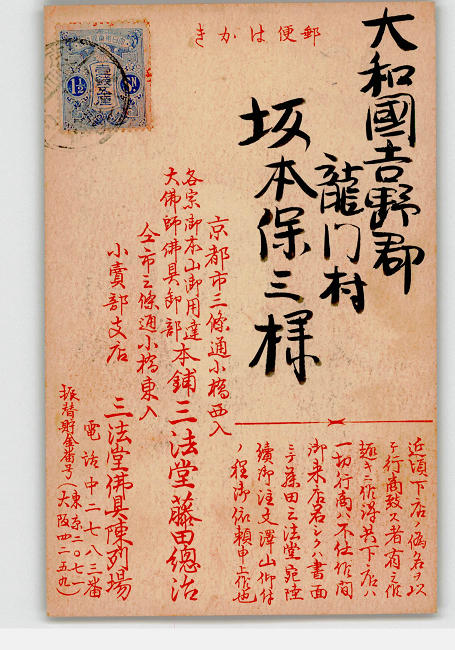 郵便はかき
大和國吉野郡
龍門村
坂本保三様
京都市三條通小橋西入
各宗御本山御用達
大佛師佛具卸部本鋪三法堂藤田總治
仝市三條通小橋東入
小賣部支店
三法堂佛具陳列場
電話中二七八三番
振替貯金番号(東京二〇七一
大阪四二五九)
近頃下店ノ偽名ヲ以
テ行商致ス者有之
一切行商ハ不仕
御来店若シクハ書面
ニテ藤田三法堂宛陸
續御注文澤山仰付
ノ程御依頼申上候也